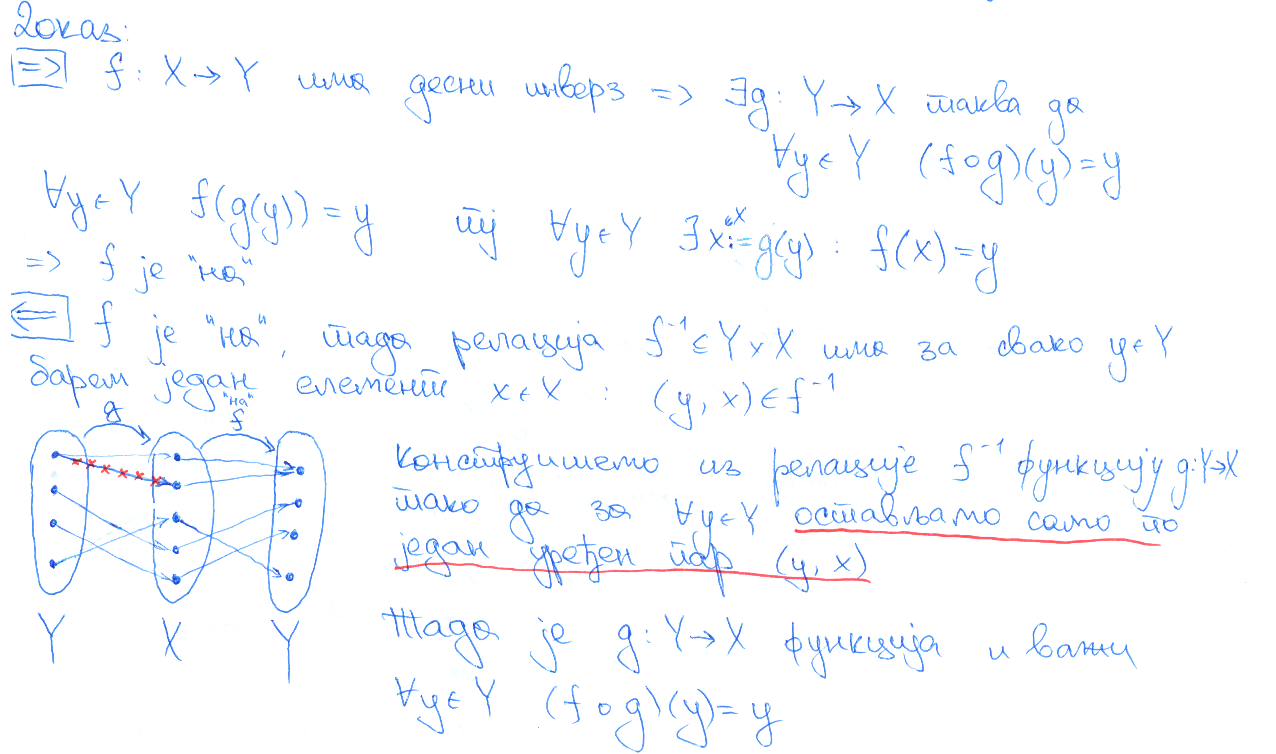 Доказ:
=> f : X → Y има десни инверз => ∃g : Y → X таква да
∀y ∈ Y (f ∘ g)(y) = y
∀y ∈ Y f(g(y)) = y тј ∀y ∈ Y ∃x∈X := g(y) : f(x) = y
=> f је "на"
<= f је "на", тада релација f⁻¹ ⊆ Y × X има за свако y ∈ Y
барем један елемент x ∈ X : (y, x) ∈ f⁻¹
g "на" f
Конструишемо из релације f⁻¹ функцију g: Y→X
тако да за ∀y∈Y остављамо само по
један уређен пар (y, x)
Тада је g : Y → X функција и важи
∀y ∈ Y (f ∘ g)(y) = y
Y X Y